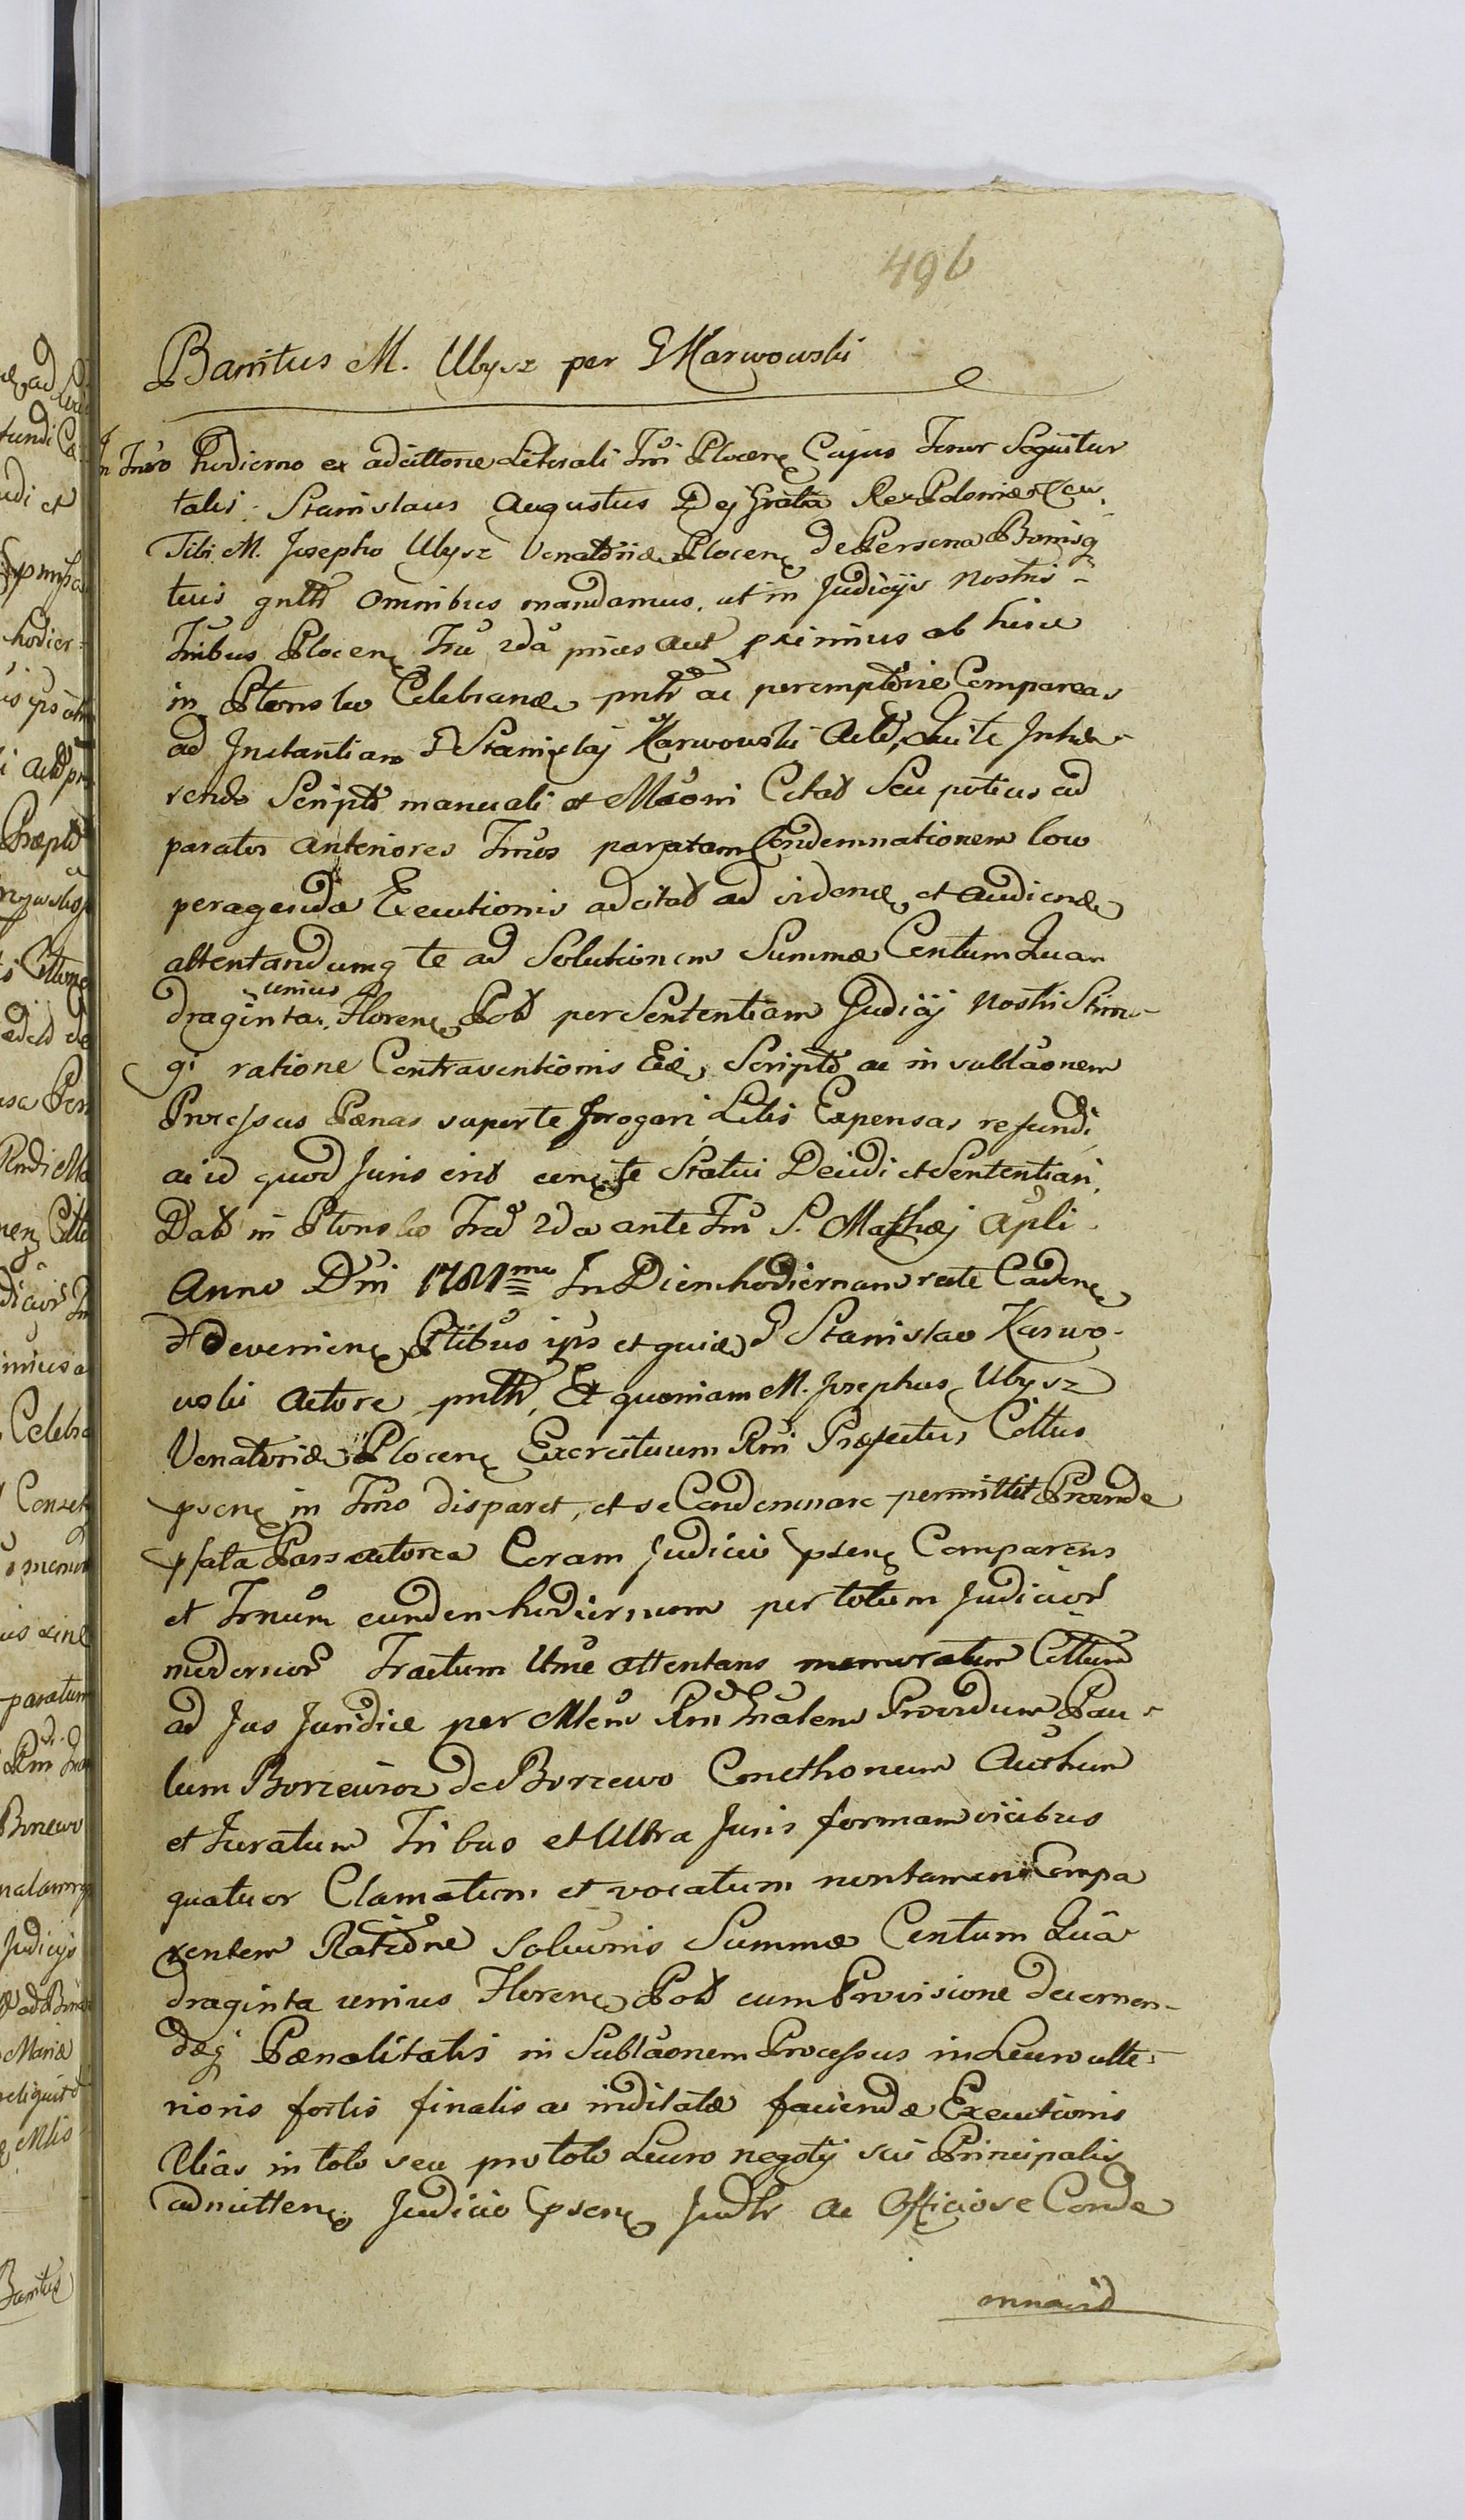 496
Banitus M. Ubysz per G Karwowski
In Trno hodierno ex adcittone Literali Trni Plocen Cujus Tenor Sequitur
talis: Stanislaus Augustus Dej Gratia Rex Poloniæ etc
Tibi M. Josepho Ubysz Venatoriæ Plocen De Persona Bonisq
tuis gnltr Omnibus mandamus, ut in Judicijs Nostris
Trnibus Plocen Fra 2da prius aut primius ab hinc
in Plonsko Celebran pntr ac peremptorie Compareas
ad Instantiam G Stanislaj Karwowski Act, Qui te Inhæ-
rendo Script manuali et Mœoni Citat Seu potius ad
paratos anteriores Trnos paratam Condemnationem loco
peragenda Executionis adcitat ad videndæ et audiendæ
attentandumq te ad Solutionem Summæ Centum Qua
draginta unius Floren Pol per Sententiam Judicij Nostri Strin-
gi ratione Contraventionis Ejd Script ac in sublaonem
Processus Pœnas super te Irrogari, Litis Expensas refundi
ac id quod Juris erit circ te Statui Deidi et Sententiari,
Dat in Plonsko Fra 2da ante Fm S. Mathæj Apli
Anno Dni 1781mo In Diem hodiernam recte Caden
et deveniene Ptibus ips et quide G Stanislao Karwo-
wski Actore pntr, Et quoniam M. Josephus Ubysz
Venatoriæ Plocen Exercituum Rni Præfectus Cittus
psene in Trno disparet, et se Condemnare permittit Proinde
pfata Pars actorea Coram Judicio psen Comparens
et Trnum eundem hodiernum per totum Judicior
modernor Tractum Ltme attentans memoratum Cittum
ad Jus Juridice per Mlem Rni Gnalem Providum Pau-
lum Borzewicz de Borzewo Cmethonem Authum
et Juratum Tribus et Ultra Juris formam vicibus
quatuor Clamatum et vocatum non tamen Compa
rentem Ratione Soluonis Summæ Centum Qua
draginta unius Floren Pol cum Provisione decernen-
dæq Pœnalitatis in Sublaonem Processus in Lucro ulte-
rioris fortis finalis ac inditatæ faciendæ Executionis
Alias in toto seu pro toto Lucro negotij sui Principalis
admitten Judicio psen Judtr ac Officiose Conde
mnavid